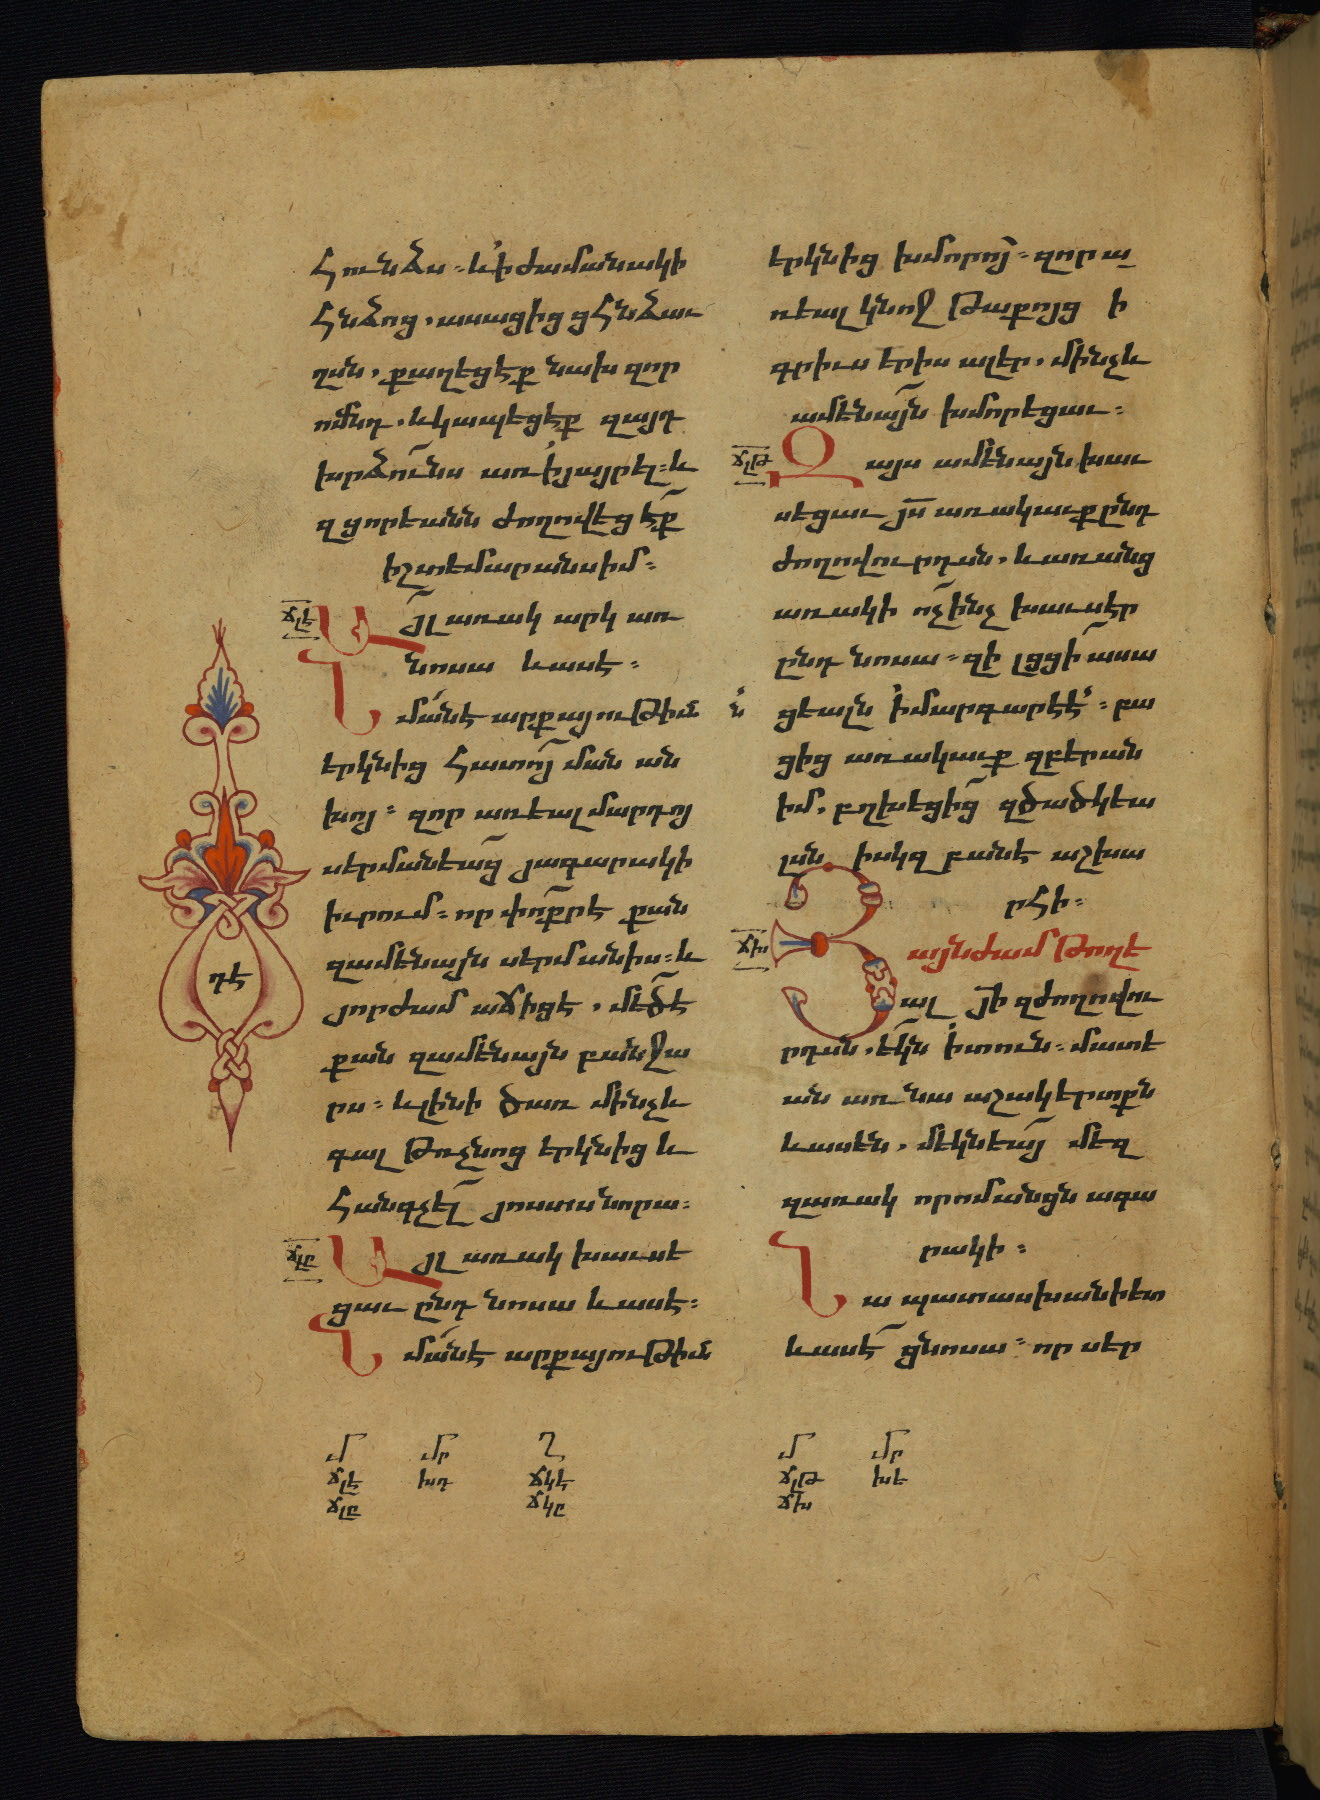 Հունձս ։ և ի ժամանակի
Հնձոց , ասացից ցՀնձաւ
ղսն , քաղեցէք նախ զոր
ոմնդ , և կապեցէք զայդ
խրձունս առ ի յայրել ։ և
զցորեանն ժողովեցէք
ի շտեմարանս իմ ։
ճլէ
Այլ առակ արկ առ
նոսա և ասէ ։
Նմանէ արքայութիւն
երկնից Հատոյ ման ան
խոյ ։ զոր առեալ մարդոյ
սերմանեաց յագարակի
իւրում ։ որ փոքր է քան
զամենայն սերմանիս ։ և
յորժամ աճիցէ , մեծ է
քան զամենայն բանջա
րս ։ և լինի ծառ մինչև
գալ թռչնոց երկնից և
Հանգչել յոստս նորա ։
ճլը
Այլ առակ խաւսե
ցաւ ընդ նոսա և ասէ ։
Նմանէ արքայութիւն
դէ
երկնից խմորոյ ։ զոր ա
ռեալ կնոջ թաքոյց ի
գրիւս երիս ալեր , մինչև
ամենայն խմորեցաւ ։
ճլթ
Զայս ամենայն խաւ
սեցաւ յս առակաւք ընդ
ժողովուրդսն , և առանց
առակի ոչինչ խաւսէր
ընդ նոսա ։ զի լցցի ասա
ցեալն ի մարգարէէ ։ բա
ցից առակաւք զբերան
իմ , բղխեցից զծածկեա
լսն իսկզբանէ աշխա
րՀի ։
ճխ
Յայնժամ թողե
ալ յի զժողովու
րդսն , եկն ի տուն ։ մատե
ան առ նա աշակերտքն
և ասեն , մեկնեա մեզ
զառակ որոմանցն ագա
րակի ։
Նա պատասխանի ետ
և ասէ ցնոսա ։ որ սեր
մ մր ղ
ճլէ խդ ճկէ
ճլը ճկը
մ մր
ճլթ խե
ճխ